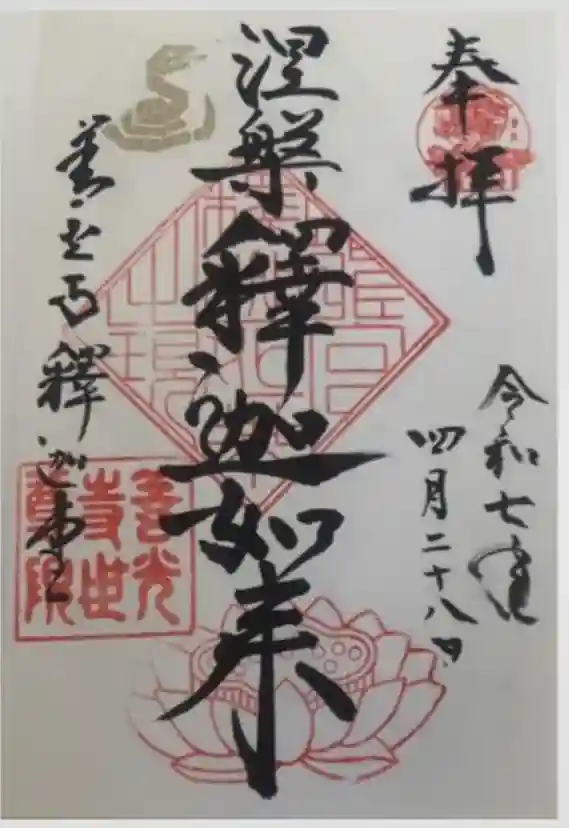 奉拝
令和七歳
四月二十八日
涅槃釋迦如来
善光寺釋迦堂
善光
寺世
尊院